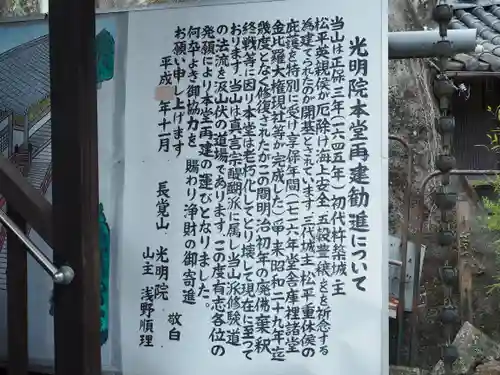 光明院本堂再建勧進について
当山は正保三年(一六四五年)初代杵築城主
松平英親侯が厄除け海上安全五穀豊穣などを祈念する
為建てられたのが開基とされています。三代城主松平重休侯の
庇護を特別に受け享保年間(一七一六年堂舎庫裡諸堂
金比羅大権現社等が完成した)以来昭和二十九年迄
幾度となく修復されたがこの間明治初年の廃佛棄釈
終戦等に因り本堂は老朽化しとり壊して現在に至って
おります。当山は真言宗醍醐派に属し当山派修験道
の法流を汲山伏の道場であります。この度有志各位の
発願により本堂再建の運びとなりました。
何卒よき御協力を 賜わり浄財の御寄進
お願い申し上げます
平成 年十一月 長覚山 光明院 敬白
山主 浅野順理